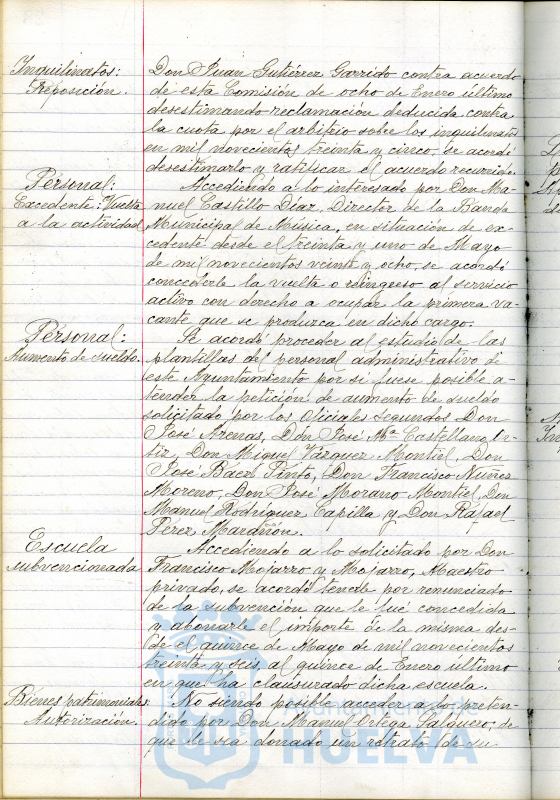 Inquilinatos:
Reposición.
Don Juan Gutiérrez Garrido contra acuerdo
de esta Comisión de ocho de Enero último
desestimando reclamación deducida contra
la cuota por el arbitrio sobre los inquilinatos
en mil novecientos treinta y cinco, se acordó
desestimarlo y ratificar el acuerdo recurrido.
Personal:
Excedente: Vuelta
a la actividad
Accediendo a lo interesado por Don Ma-
nuel Castillo Díaz, Director de la Banda
Municipal de Música, en situación de ex-
cedente desde el treinta y uno de Mayo
de mil novecientos veinte y ocho, se acordó
concederle la vuelta o reingreso al servicio
activo con derecho a ocupar la primera va-
cante que se produzca en dicho cargo.
Personal:
Aumento de sueldo.
Se acordó proceder al estudio de las
plantillas del personal administrativo de
este Ayuntamiento por si fuese posible a-
tender la petición de aumento de sueldo
solicitado por los Oficiales segundos Don
José Arenas, Don José Mª Castellano Or-
tiz, Don Miguel Vázquez Montiel, Don
José Báez Pinto, Don Francisco Núñez
Moreno, Don José Morano Montiel, Don
Manuel Rodríguez Capilla y Don Rafael
Pérez Marañón.
Escuela
subvencionada
Accediendo a lo solicitado por Don
Francisco Mojarro y Mojarro, Maestro
privado, se acordó tenerle por renunciado
de la subvención que le fué concedida
y abonarle el importe de la misma des-
de el quince de Mayo de mil novecientos
treinta y seis, al quince de Enero último
en que ha clausurado dicha escuela.
Bienes patrimoniales:
Autorización.
No siendo posible acceder a lo preten-
dido por Don Manuel Ortega Salguero, de
que le sea donado un retrato de su
HUELVA